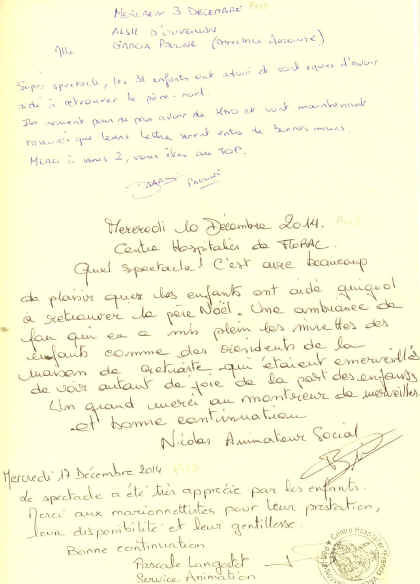 MERCREDI 3 DECEMBRE
ALSH D'
GARCIA PAULINE
Super spectacle, les 38 enfants ont adoré et sont d'avoir
aidé à retrouver le père-noël.
Ils avaient peur de pas avoir de et sont maintenant
rassurés que leurs lettre soient entre de bonnes mains.
MERCI à vous 2, vous êtes au TOP.
Mercredi 10 Décembre 2014.
Centre Hospitalier de FLORAC.
Quel spectacle! C'est avec beaucoup
de plaisir que les enfants ont aidé guignol
a retrouver le père Noël. Une ambiance de
fou qui en a mis plein les mirettes des
enfants comme des résidents de la
maison de retraite qui étaient émerveillés
de voir autant de joie de la part des enfants
Un grand merci au montreur de merveilles
et bonne continuation
Nicolas Animateur Social
Mercredi 17 Décembre 2014
Le spectacle a été très apprécié par les enfants.
Merci aux marionnettistes pour leur prestation,
leur disponibilité et leur gentillesse.
Bonne continuation
Pascale Langlet
Service Animation